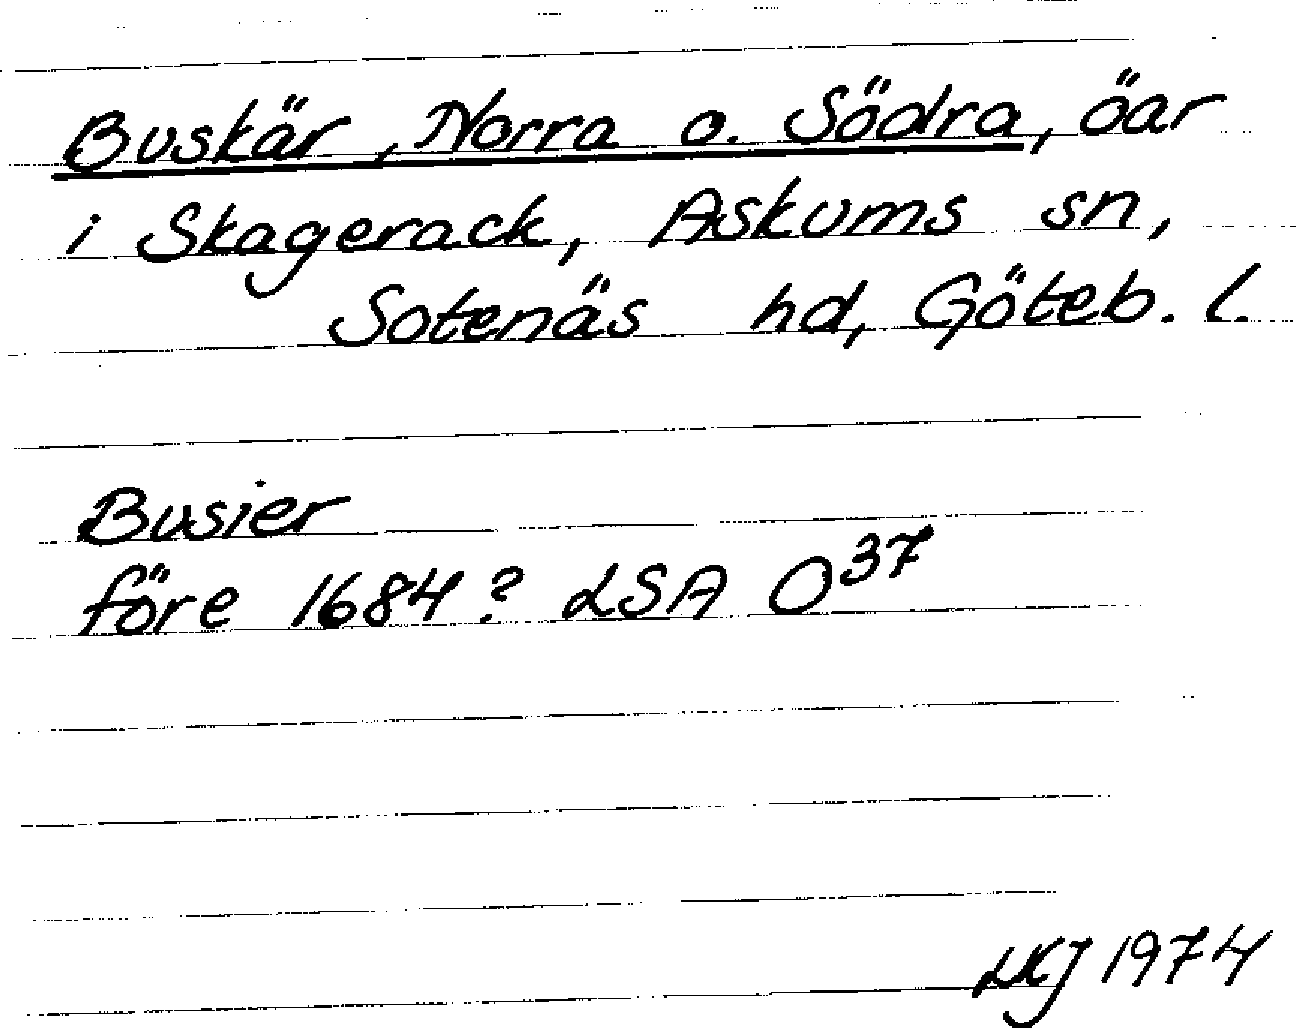 Buskär, Norra o. Södra, öar
i Skagerack, Askums sn,
Sotenäs hd, Göteb. l.
Busier
före 1684? LSA O37
1974